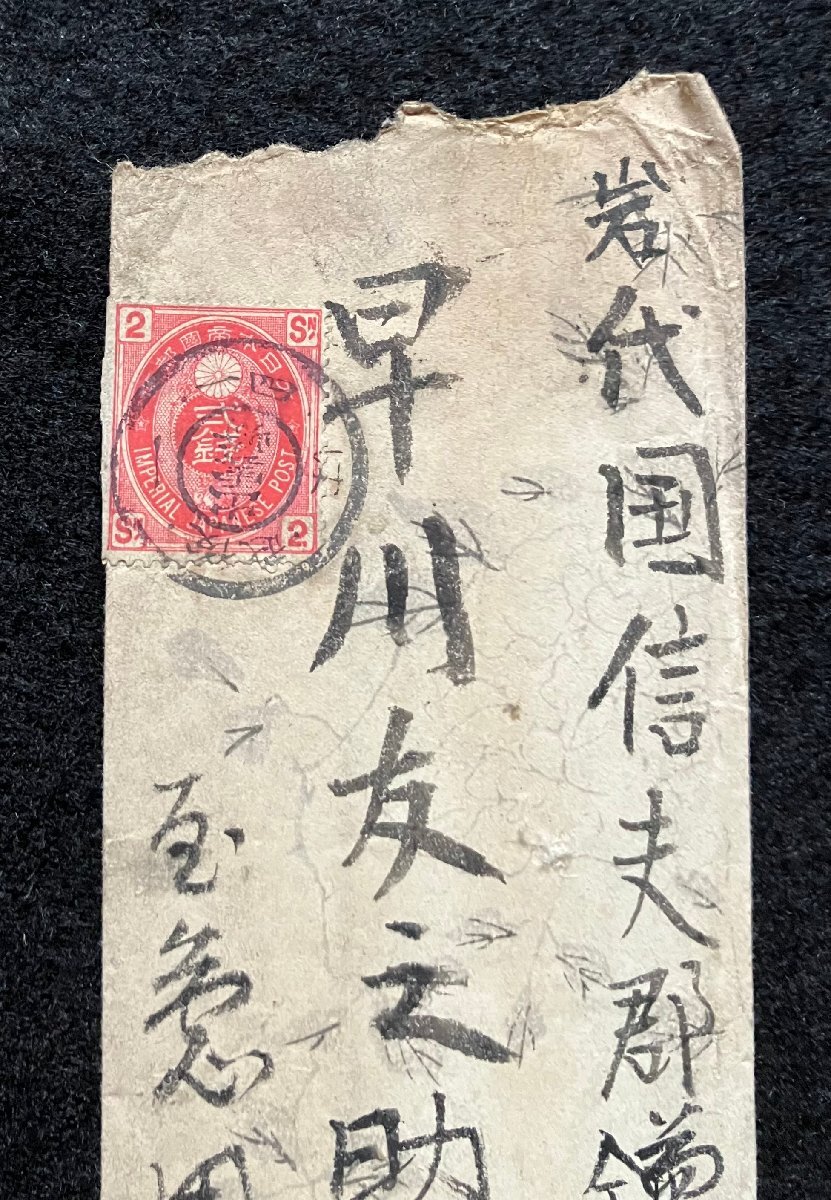 岩代国信夫郡鎌
早川友之助
至急用
2 SN
大日本帝國郵便
弐銭
IMPERIAL JAPANESE POST
SN 2